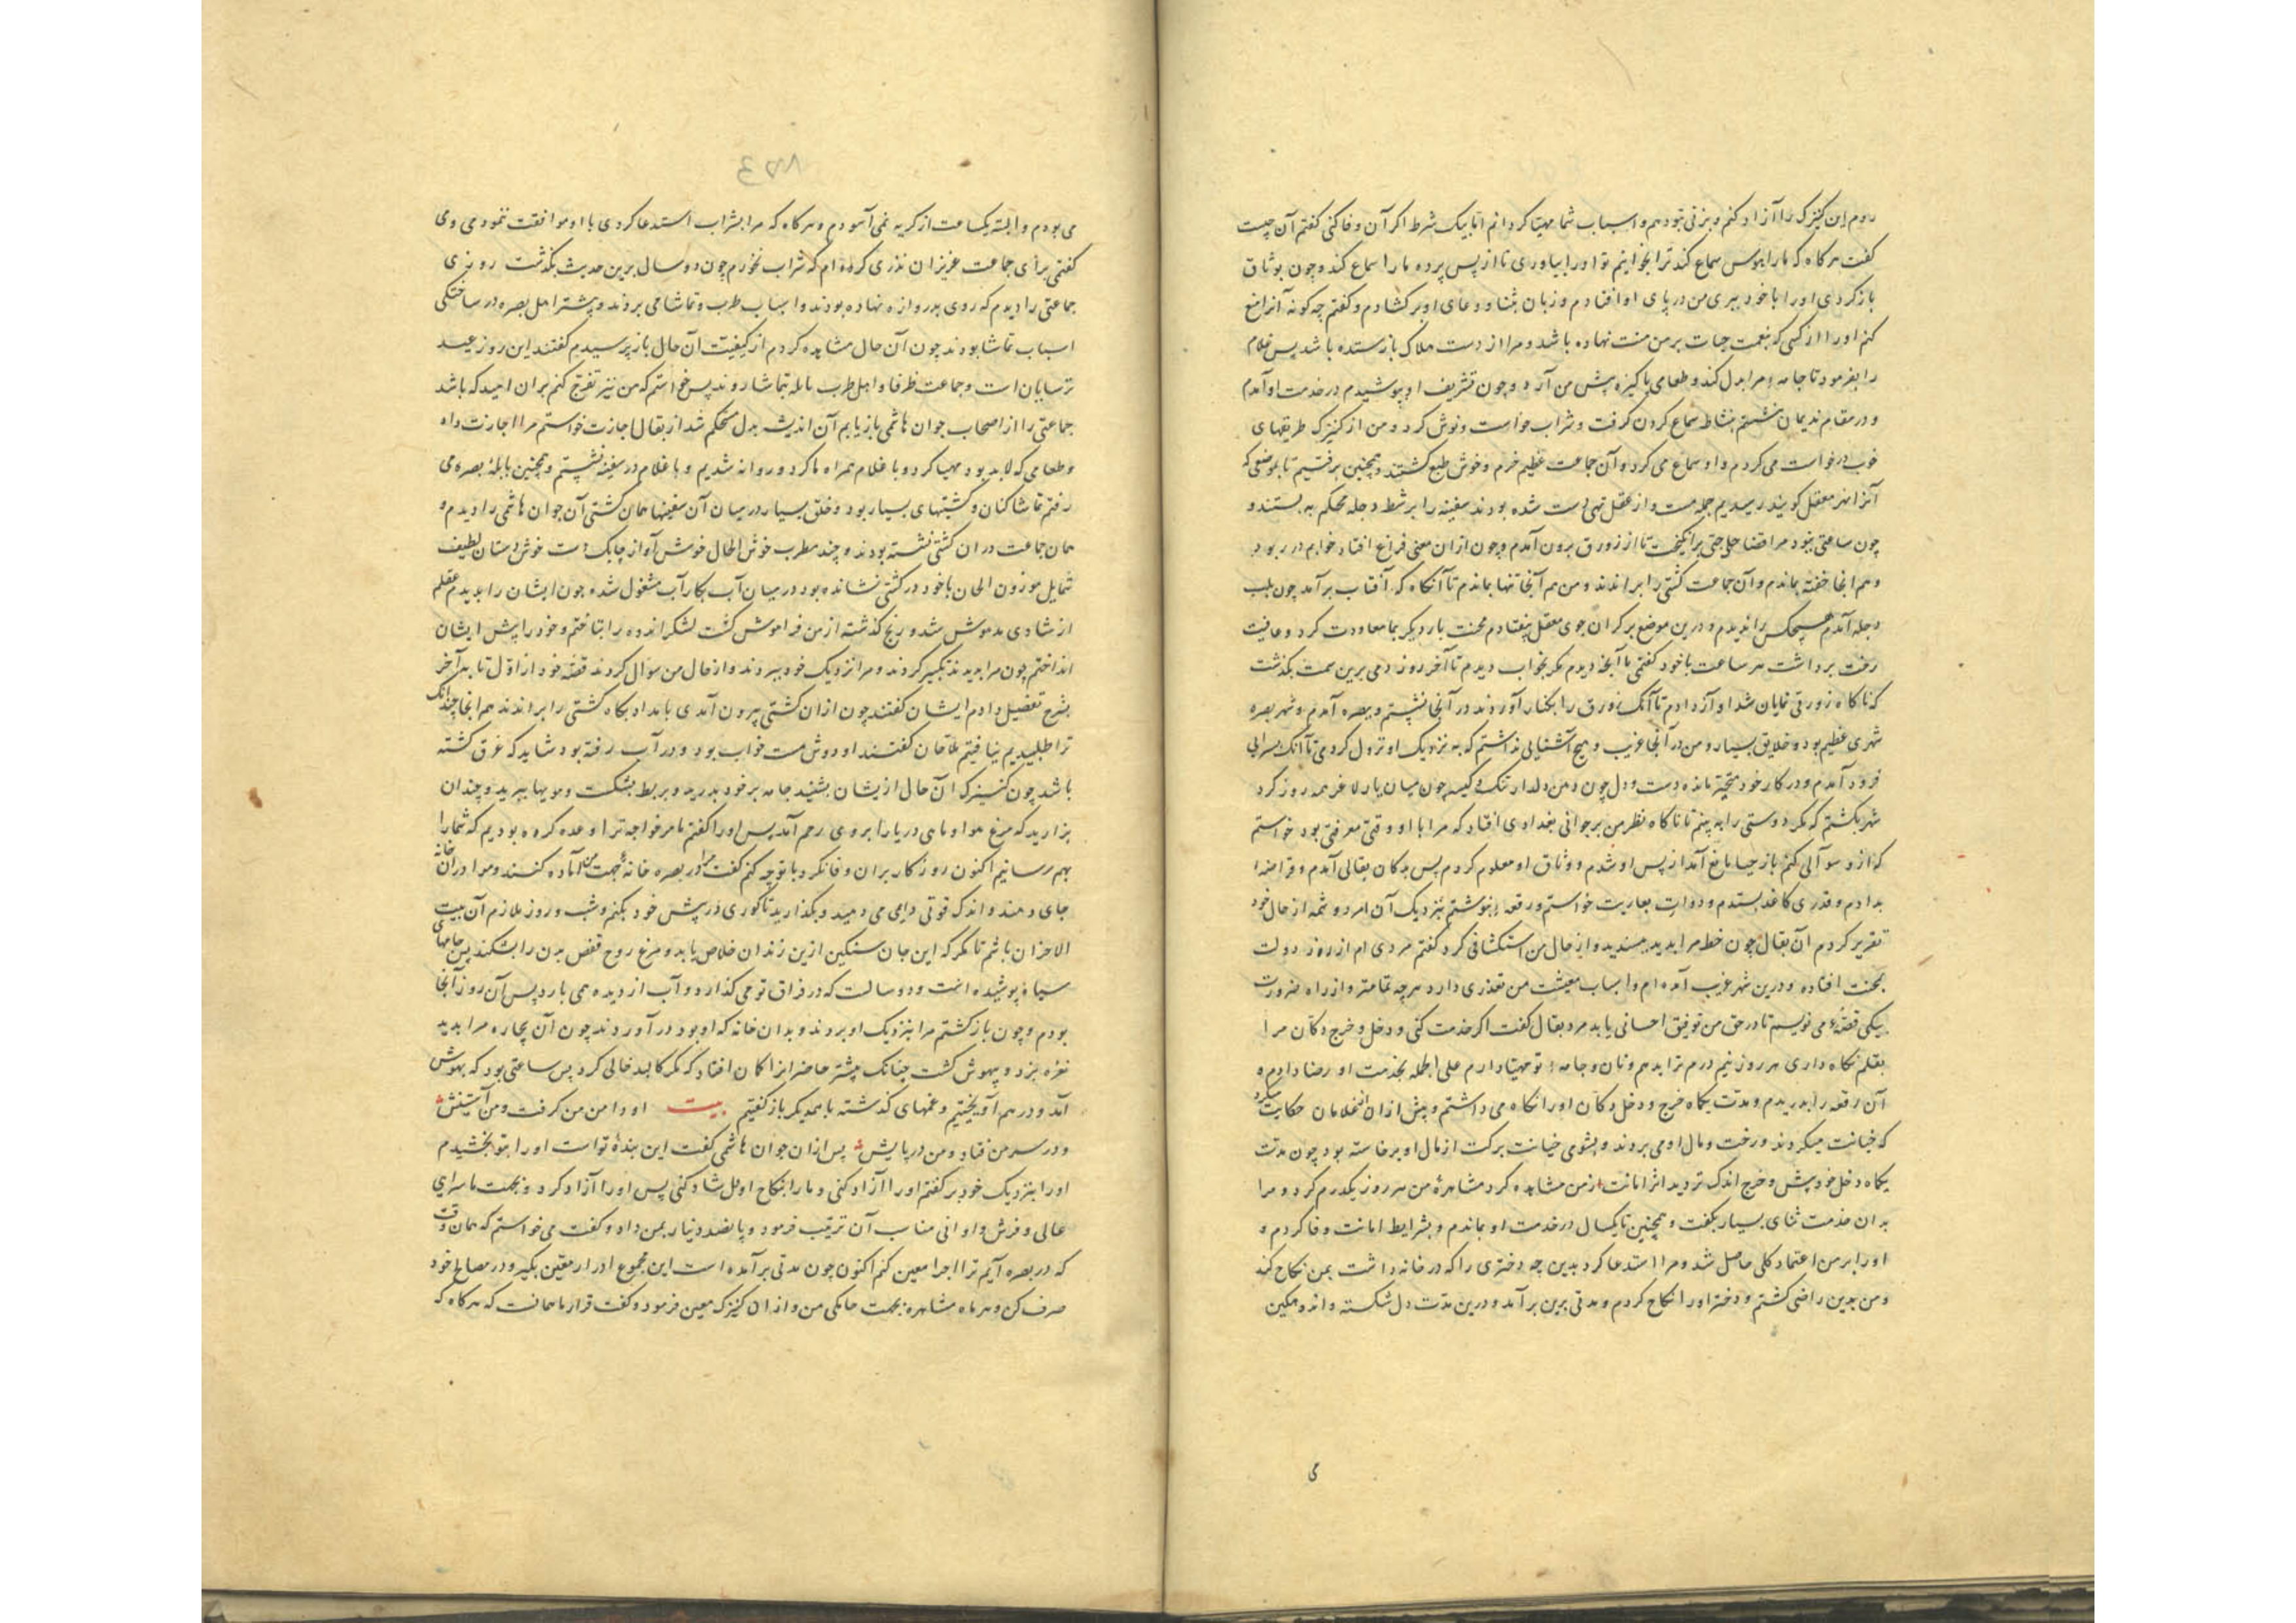 روم این کنیزک را آزاد کنم و بزنی بتو دهم و اسباب شما مهیا کردانم اما بیک شرط اکر آن وفا کنی کفتم آن چیست
کفت هر کاه که ما را هوس سماع کند ترا بخوانیم تو او را بیاوری تا از پس پرده ما را سماع کند و چون بوثاق
باز کردی او را با خود ببری من در پای او افتادم و زبان بثنا و دعای او بر کشادم و کفتم چه کونه آنرا منع
کنم او را از کسی که نعمت حیات بر من منت نهاده باشد و مرا از دست هلاک باز ستده باشد پس غلام
را بفرمود تا جامهٔ مرا بدل کند و طعامی پاکیزه پیش من آرد و چون تشریف او پوشیدم در خدمت او آمدم
و در مقام ندیمان نشستم نشاط سماع کردن کرفت و شراب خواست و نوش کرد و من از کنیزک طریقهای
خوب درخواست می کردم و او سماع می کرد و آن جماعت عظیم خرم و خوش طبع کشتند و همچنین برفتیم تا بموضعی که
آنرا نهر معقل کویند رسیدیم جمله مست و از عقل تهی دست شده بودند سفینه را بر شط دجله محکم به بستند و
چون ساعتی ببود مرا قضا حاجتی برانکیخت تا از زورق برون آمدم و چون از ان معنی فراغ افتاد خوابم در ربود
و هم انجا خفته بماندم و آن جماعت کشتی را براندند و من هم آنجا تنها بماندم تا آنکاه که آفتاب برآمد چون بلب
دجله آمدم هیچکس را ندیدم و درین موضع بر کران جوی معقل بیفتادم محنت بار دیکر بما معاودت کرد و عافیت
رخت برداشت هر ساعت با خود کفتمی با آنچه دیدم مکر بخواب دیدم تا آخر روز دمی برین سمت بکذشت
که ناکاه زورقی نمایان شد آواز دادم تا آنک زورق را بکنار آوردند در آنجا نشستم و ببصره آمدم و شهر بصره
شهری عظیم بود و خلایق بسیار و من در آنجا غریب و هیچ آشنایی نداشتم که به نزدیک او نزول کردمی تا آنک بسرایی
فرود آمدم و در کار خود متحیر مانده دست و دل چون دهن دلدار تنک و کیسه چون میان یار لاغر همه روز کرد
شهر بکشتم که مکر دوستی را به بینم تا ناکاه نظر من بر جوانی بغدادی افتاد که مرا با او وقتی معرفتی بود خواستم
که ازو سوآلی کنم باز حیا مانع آمد از پس او شدم و وثاق او معلوم کردم پس بدکان بقالی آمدم و قراضه
بدادم و قدری کاغذ بستدم و دوات بعاریت خواستم و رقعهٔ بنوشتم بنزدیک آن مرد و شمه از حال خود
تقریر کردم آن بقال چون خط مرا بدید بپسندید و از حال من استکشافی کرد کفتم مردی ام از روز دولت
بمحنت افتاده و درین شهر غریب آمده ام و اسباب معیشت من تعذری دارد هر چه تمامتر و از راه ضرورت
بیکی قصهٔ می نویسم تا در حق من توفیق احسانی یابد مرد بقال کفت اکر خدمت کنی و دخل و خرج دکان مرا
بقلم نکاه داری هر روز نیم درم ترا بدهم و نان و جامهٔ تو مهیا دارم علی الجمله بخدمت او رضا دادم و
آن رقعه را بدریدم و مدت یکماه خرج و دخل دکان او را نکاه می داشتم و پیش از ان غلامان حکایت میکرد
که خیانت میکردند و رخت و مال او می بردند و بشومی خیانت برکت از مال او برخاسته بود چون مدت
یکماه دخل خود بیش و خرج اندک تر دید اثر امانت از من مشاهده کرد مشاهرهٔ من هر روز یکدرم کرد و مرا
بدان خدمت ثنای بسیار بکفت و همچنین تا یکسال در خدمت او بماندم و بشرایط امانت وفا کردم و
او را بر من اعتماد کلی حاصل شد و مرا استدعا کرد بدین چه دختری را که در خانه داشت بمن نکاح کند
و من بدین راضی کشتم و دختر او را نکاح کردم و مدتی برین برآمد و درین مدت دل شکسته و اندوهکین
می
۸۷۳
می بودم و البته یکساعت از کریه نمی آسودم و هر کاه که مرا بشراب استدعا کردی با او موافقت ننمودمی وی
کفتی برای جماعت عزیزان نذری کرده ام که شراب نخورم چون دو سال برین حدیث بکذشت روزی
جماعتی را دیدم که روی بدروازه نهاده بودند و اسباب طرب و تماشا می بردند و بیشتر اهل بصره در ساختکی
اسباب تماشا بودند چون آن حال مشاهده کردم از کیفیت آن حال باز پرسیدم کفتند این روز عید
ترسایان است و جماعت ظرفا و اهل طرب بابله بتماشا روند پس خواستم که من نیز تفرج کنم بران امید که باشد
جماعتی را از اصحاب جوان هاشمی باز یابم آن اندیشه بدل محکم شد از بقال اجازت خواستم مرا اجازت داد
و طعامی که لابد بود مهیا کرد و با غلام همراه ما کرد و روانه شدیم و با غلام در سفینه نشستم و همچنین بابلهٔ بصره می
رفتم تماشا کنان و کشتیهای بسیار بود و خلق بسیار در میان آن سفینها همان کشتی آن جوان هاشمی را دیدم و
همان جماعت در ان کشتی نشسته بودند و چند مطرب خوش الحال خوش آواز چابک دست خوش دستان لطیف
شمایل موزون الحان با خود در کشتی نشانده بود در میان آب بکار آب مشغول شده چون ایشان را بدیدم عقلم
از شادی مدهوش شد و رنج کذشته از من فراموش کشت لشکر اندوه را بتاختم و خود را پیش ایشان
انداختم چون مرا بدیدند تکبیر کردند و مرا نزدیک خود ببردند و از حال من سؤال کردند قصه خود از اول تا بآخر
بشرح تفصیل دادم ایشان کفتند چون از ان کشتی بیرون آمدی بامداد پکاه کشتی را براندند هم انجا چندانک
ترا طلبیدیم نیافتیم ملاحان کفتند او دوش مست خواب بود و در آب رفته بود شاید که غرق کشته
باشد چون کنیزک آن حال از یشان بشنید جامه بر خود بدرید و بربط بشکست و مویها ببرید و چندان
بزارید که مرغ هوا و ماهی دریا را بر وی رحم آمد پس او را کفتم ما مر خواجه ترا وعده کرده بودیم که شما را
بهم رسانیم اکنون روزکار بران وفا نکرد با تو چه کنم کفت مرا در بصره خانهٔ جهت من آماده کنند و مرا در ان خانه
جای دهند و اندک قوتی دایمی می دهید و بکذارید تا کوری در پیش خود بکنم و شب و روز ملازم آن بیت
الاحزان باشم تا مکر که این جان سنکین ازین زندان خلاص یابد و مرغ روح قفص بدن را بشکند پس جامهای
سیاه پوشیده است و دو سالست که در فراق تو می کذارد و آب از دیده همی بارد پس آن روز آنجا
بودم و چون باز کشتم مرا بنزدیک او بردند و بدان خانه که او بود در آوردند چون آن بیچاره مرا بدید
نعره بزد و بیهوش کشت چنانک بیشتر حاضرانرا کمان افتاد که مکر کالبد خالی کرد پس ساعتی بود که بهوش
آمد و در هم آویختیم و غمهای کذشته با همدیکر باز کفتیم بیت او دامن من کرفت و من آستینش
و در سر من فتاد و من در پایش پس از ان جوان هاشمی کفت این بندهٔ تو است او را بتو بخشیدم
او را بنزدیک خود بر کفتم او را آزاد کنی و ما را بنکاح اول شاد کنی پس او را آزاد کرد و بجهت ما سرای
عالی و فرش و اوانی مناسب آن ترتیب فرمود و پانصد دینار بمن داد و کفت می خواستم که همان وقت
که در بصره آیم ترا اجرا معین کنم اکنون چون مدتی برآمده است این مجموع ادرار معین بکیر و در مصالح خود
صرف کن و هر ماه مشاهره بجهت جامکی من و از ان کنیزک معین فرمود و کفت قرار ما همانست که هر کاه که